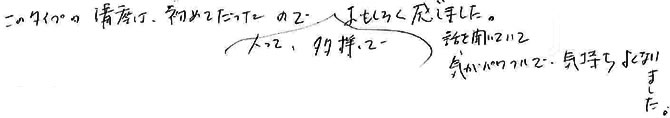 このタイプの講座は、初めてだったので おもしろく感じました。
人って、多様で
話を聞いていて
気がパワフルで、気持ちよくなりました。